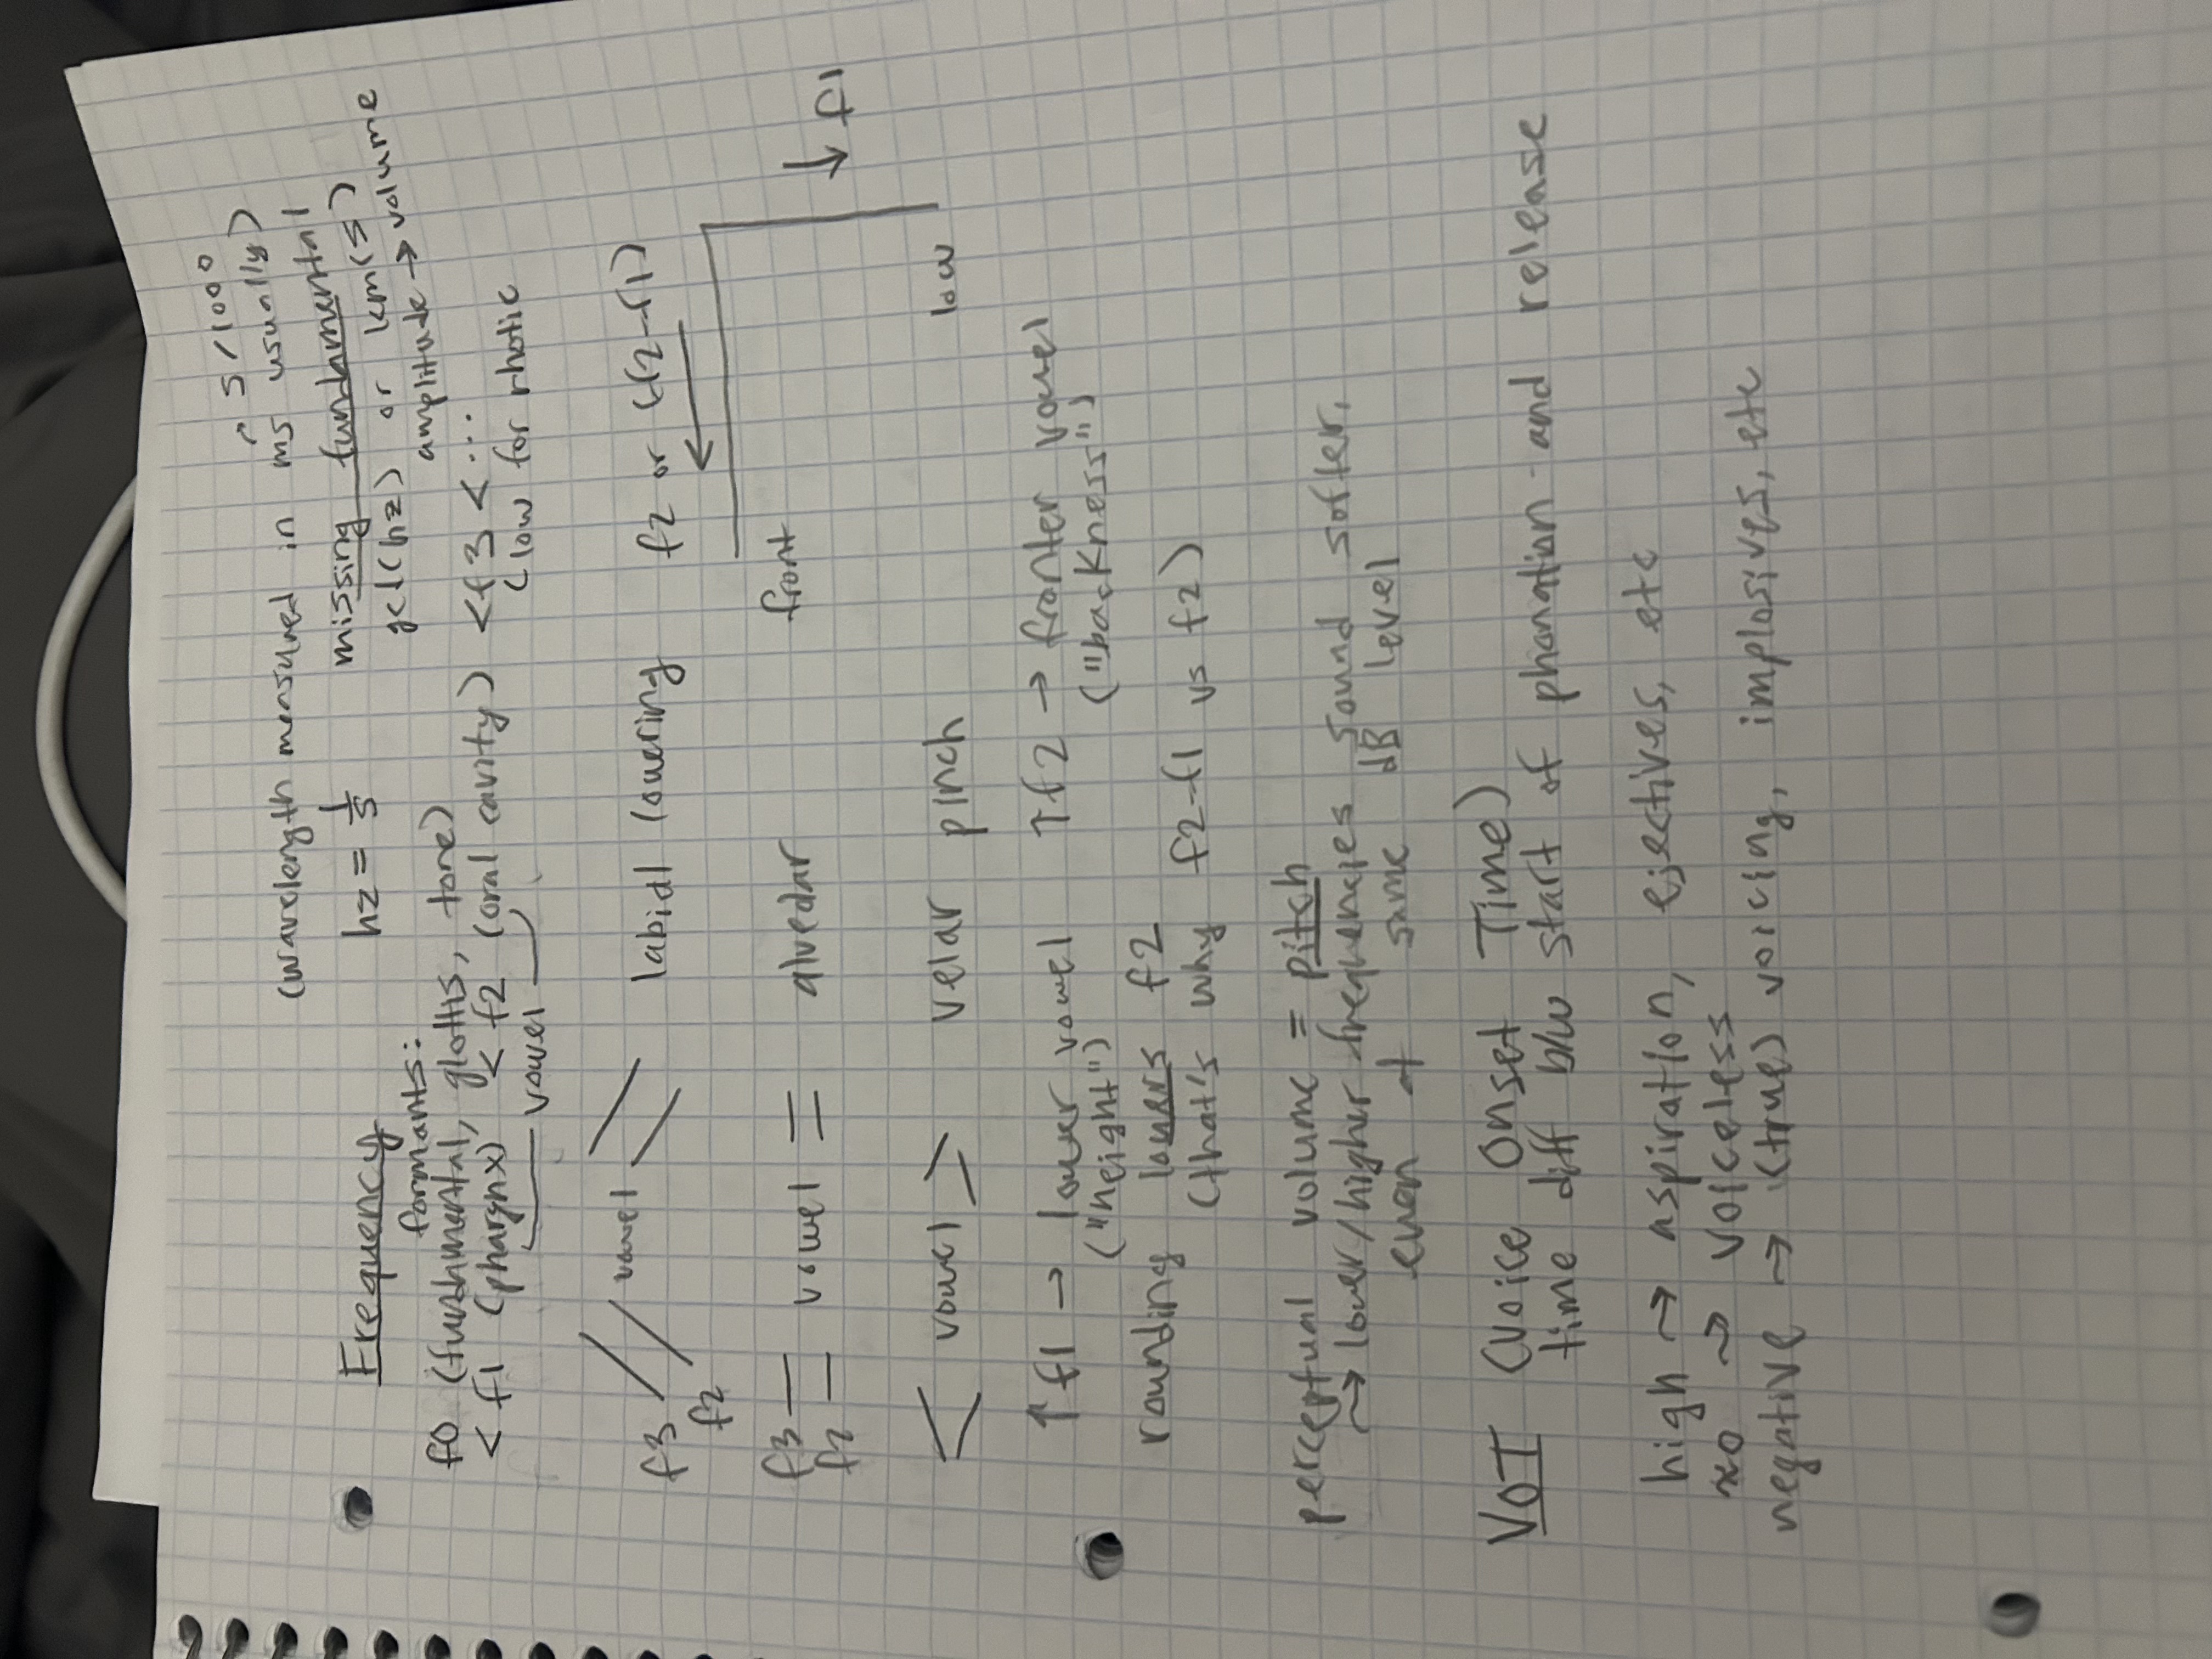 ↗ s/1000
(wavelength measured in ms usually)
Frequency hz = 1/s missing fundamental
gcd(hz) or lcm(s)
amplitude → volume
formants:
f0 (fundamental, glottis, tone)
< f1 (pharynx) < f2 (oral cavity) < f3 < ...
(low for rhotic
vowel
f3 vowel labial lowering f2 or (f2-f1)
f2 ←
f3 vowel alveolar front
f2 ↓ f1
< vowel > velar pinch low
↑f1 → lower vowel ↑f2 → fronter vowel
("height") ("backness")
rounding lowers f2
(that's why f2-f1 vs f2)
perceptual volume = pitch
→ lower/higher frequencies sound softer,
even at same dB level
VOT (Voice Onset Time)
time diff b/w start of phonation and release
high → aspiration, ejectives, etc
≈0 → voiceless
negative → (true) voicing, implosives, etc